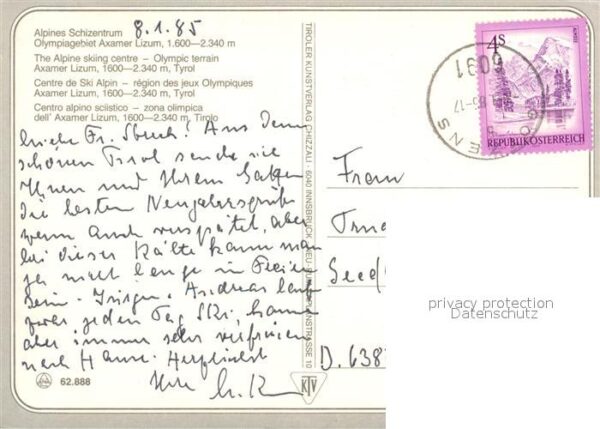 Alpines Schizentrum
Olympiagebiet Axamer Lizum, 1.600—2.340 m
The Alpine skiing centre – Olympic terrain
Axamer Lizum, 1600—2.340 m, Tyrol
Centre de Ski Alpin – région des jeux Olympiques
Axamer Lizum, 1600—2.340 m, Tyrol
Centro alpino sciistico – zona olimpica
dell' Axamer Lizum, 1600—2.340 m, Tirolo
8.1.85
Liebe Fr. ! Aus dem
schönen Tirol sende ich
Ihnen und Ihrem Gatten
die besten Neujahrsgrüße
wenn auch verspätet, aber
bei dieser Kälte kann man
ja nicht lange im Freien
sein. Andreas
zwar jeden Tag Ski,
aber immer sehr verfroren
nach Hause. Herzlichst
Ihre
62.888
TIROLER KUNSTVERLAG CHIZZALI, 6040 INNSBRUCK-NEU-RUM
KTV
4S
REPUBLIK ÖSTERREICH
6091
Frau
D. 638
privacy protection
Datenschutz